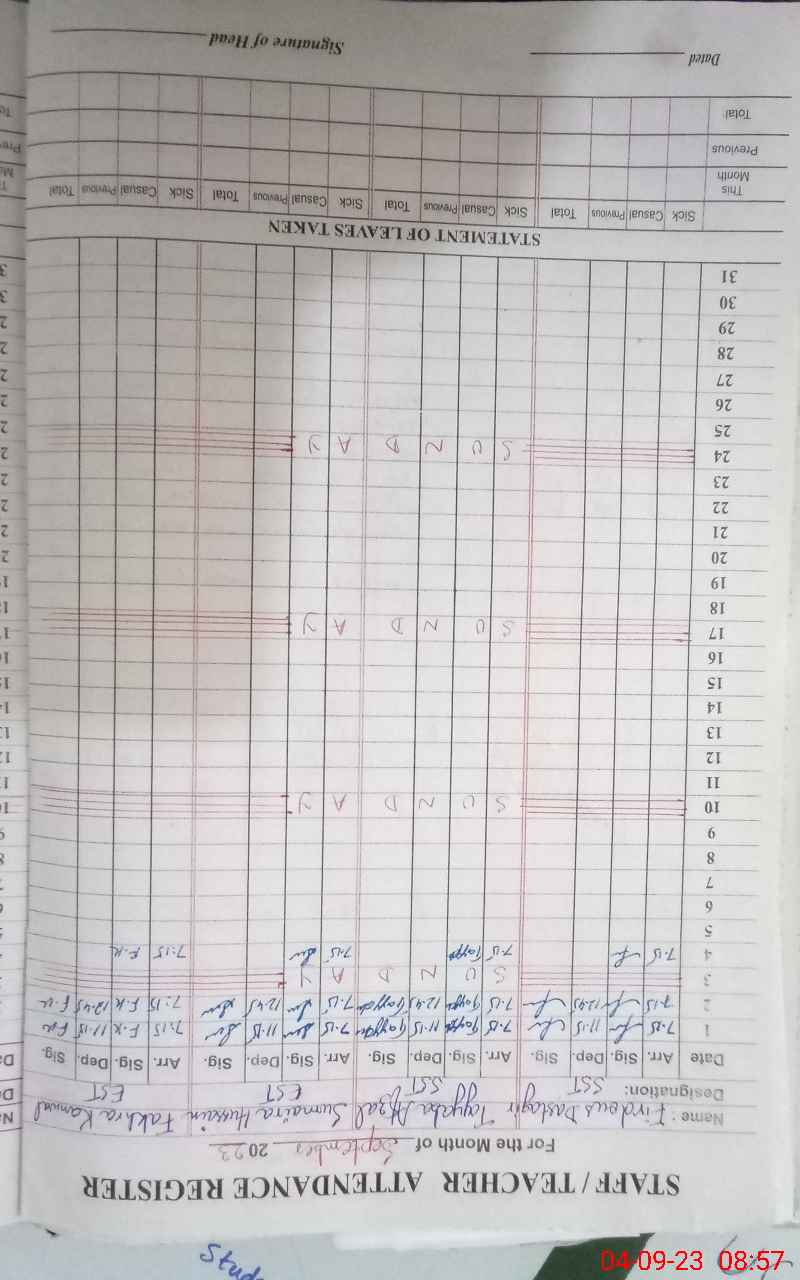 STAFF / TEACHER ATTENDANCE REGISTER
For the Month of September 2023
Name : Firdous Dastagir Tayyaba Afzal Sumaira Hussain Fakhra Kanwal
Designation: SST SST EST EST
Date Arr. Sig. Dep. Sig. Arr. Sig. Dep. Sig. Arr. Sig. Dep. Sig. Arr. Sig. Dep. Sig.
1 7-15 11-15 7-15 11-15 7-15 11-15 7:15 F.K 11-15 F.K
2 7-15 12-45 7-15 12-45 7-15 12-45 7:15 F.K 12-45 F.K
3 S U N D A Y
4 7-15 7-15 7-15 7:15 F.K
5
6
7
8
9
10 S U N D A Y
11
12
13
14
15
16
17 S U N D A Y
18
19
20
21
22
23
24 S U N D A Y
25
26
27
28
29
30
31
STATEMENT OF LEAVES TAKEN
Sick Casual Previous Total Sick Casual Previous Total Sick Casual Previous Total Sick Casual Previous Total
This Month
Previous
Total
Dated
Signature of Head
04-09-23 08:57